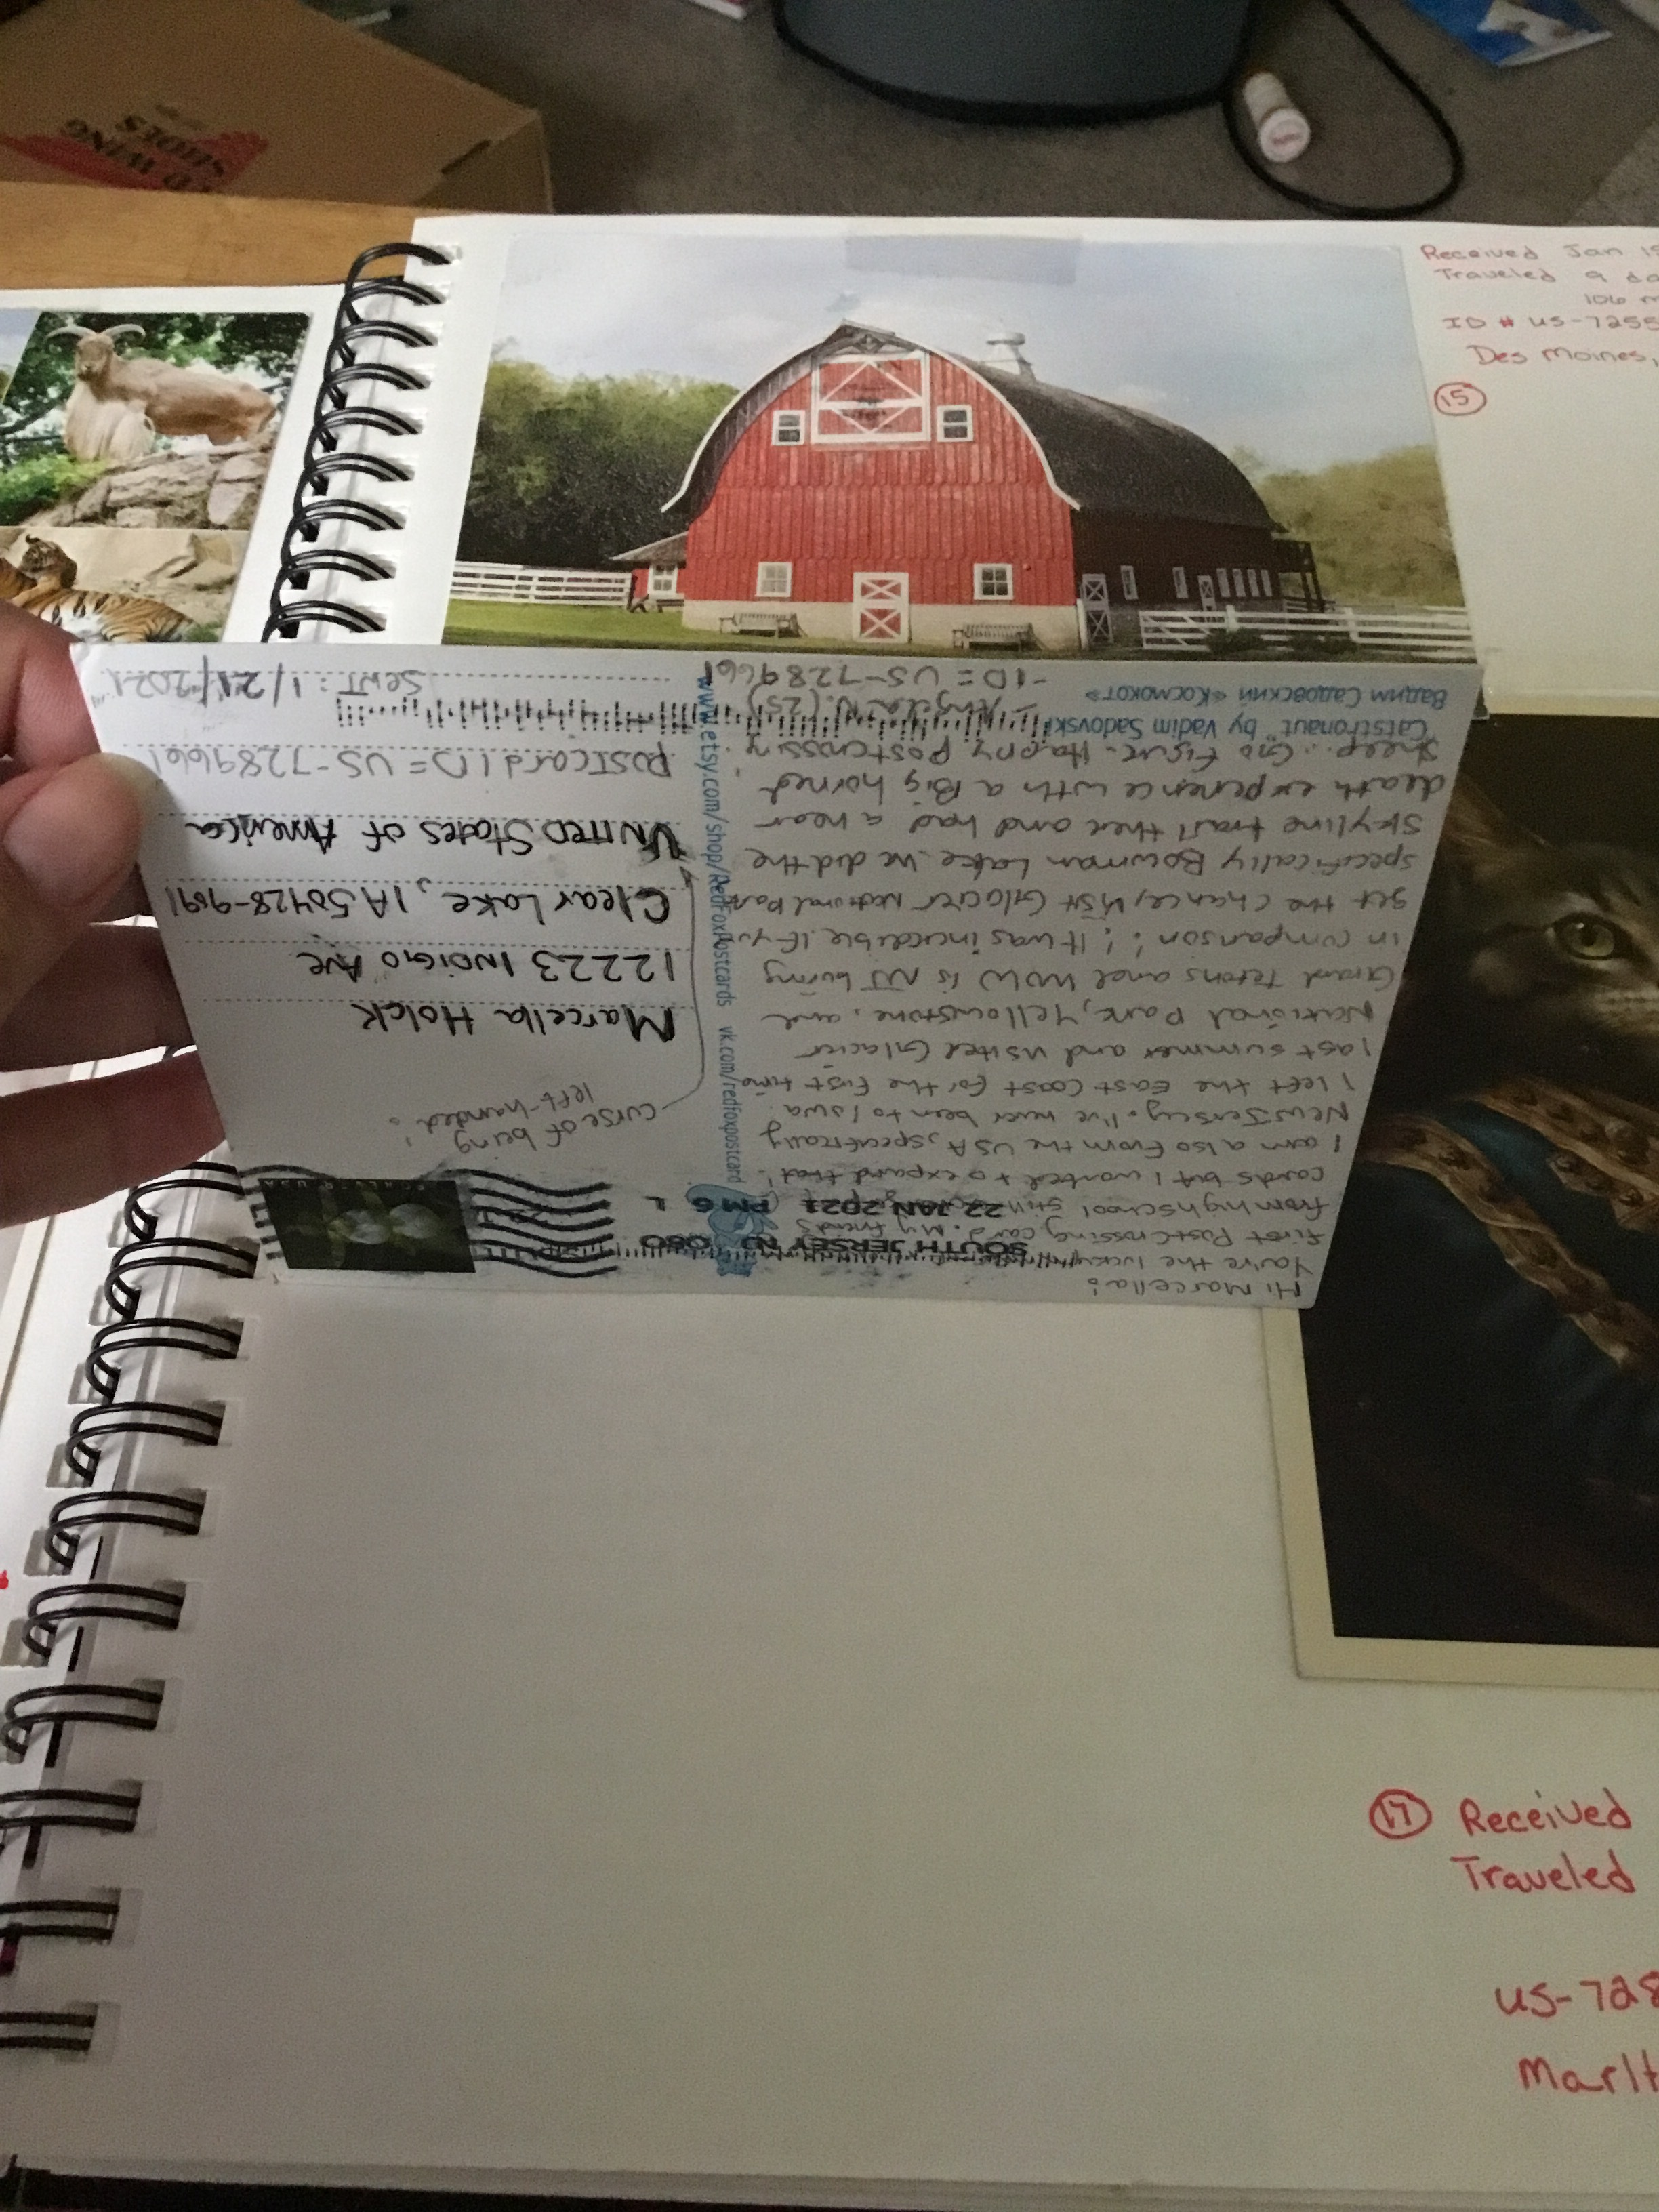 RED WING
SHOES
Received Jan
Traveled 9
106
ID # US-7255
Des Moines,
15
Hi Marcella!
You're the lucky
first PostCrossing card. My friends
from highschool still
cards but I wanted to expand that!
I am also from the USA, specifically
New Jersey. I've never been to Iowa.
I left the East Coast for the first time
last summer and visited Glacier
National Park, Yellowstone, and
Grand Tetons and WOW is NJ boring
in comparison! It was incredible. If you
get the chance, visit Glacier National Park
specifically Bowman Lake. We did the
Skyline trail there and had a near
death experience with a Big horned
sheep. Go figure. Happy Postcrossing
- Angela N. (25)
-ID = US-7289661
Catstronaut by Vadim Sadovski
Вадим Садовский «Космокот»
SOUTH JERSEY NJ 080
22 JAN 2021 PM 6 L
www.etsy.com/shop/RedFoxPostcards vk.com/redfoxpostcard
FOREVER USA
curse of being
left-handed!
Marcella Holck
12223 Indigo Ave
Clear Lake, IA 50428-9091
United States of America
Postcard ID = US-7289661
Sent: 1/21/2021
17 Received
Traveled
US-728
Marlt